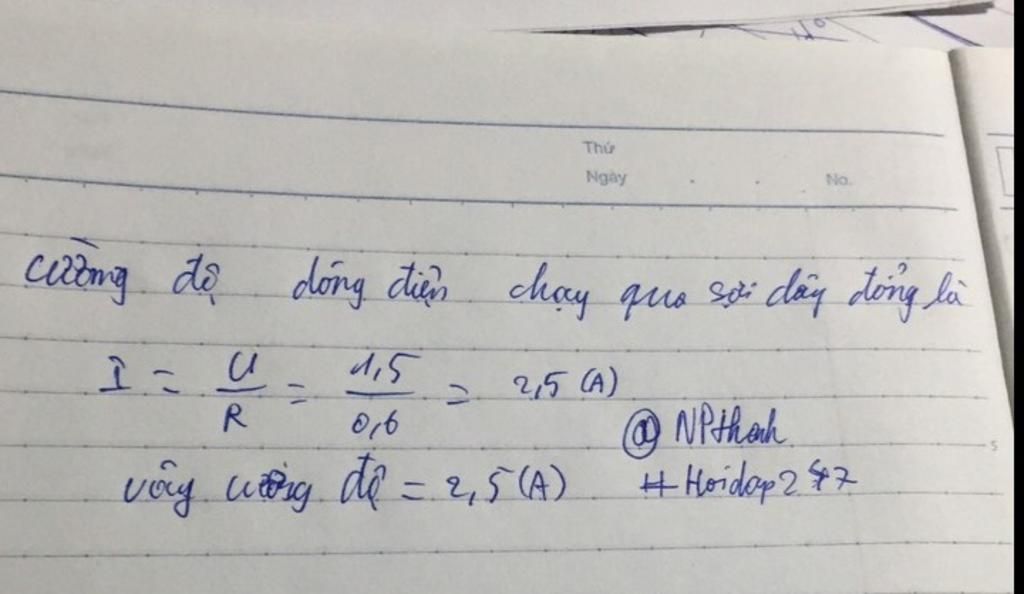 Thứ
Ngày . . . No.
cường độ dóng điện chạy qua sợi dây đồng là
I = U/R = 1,5/0,6 = 2,5 (A)
@ NPthanh
vây cường độ = 2,5 (A) # Hoidap247
5